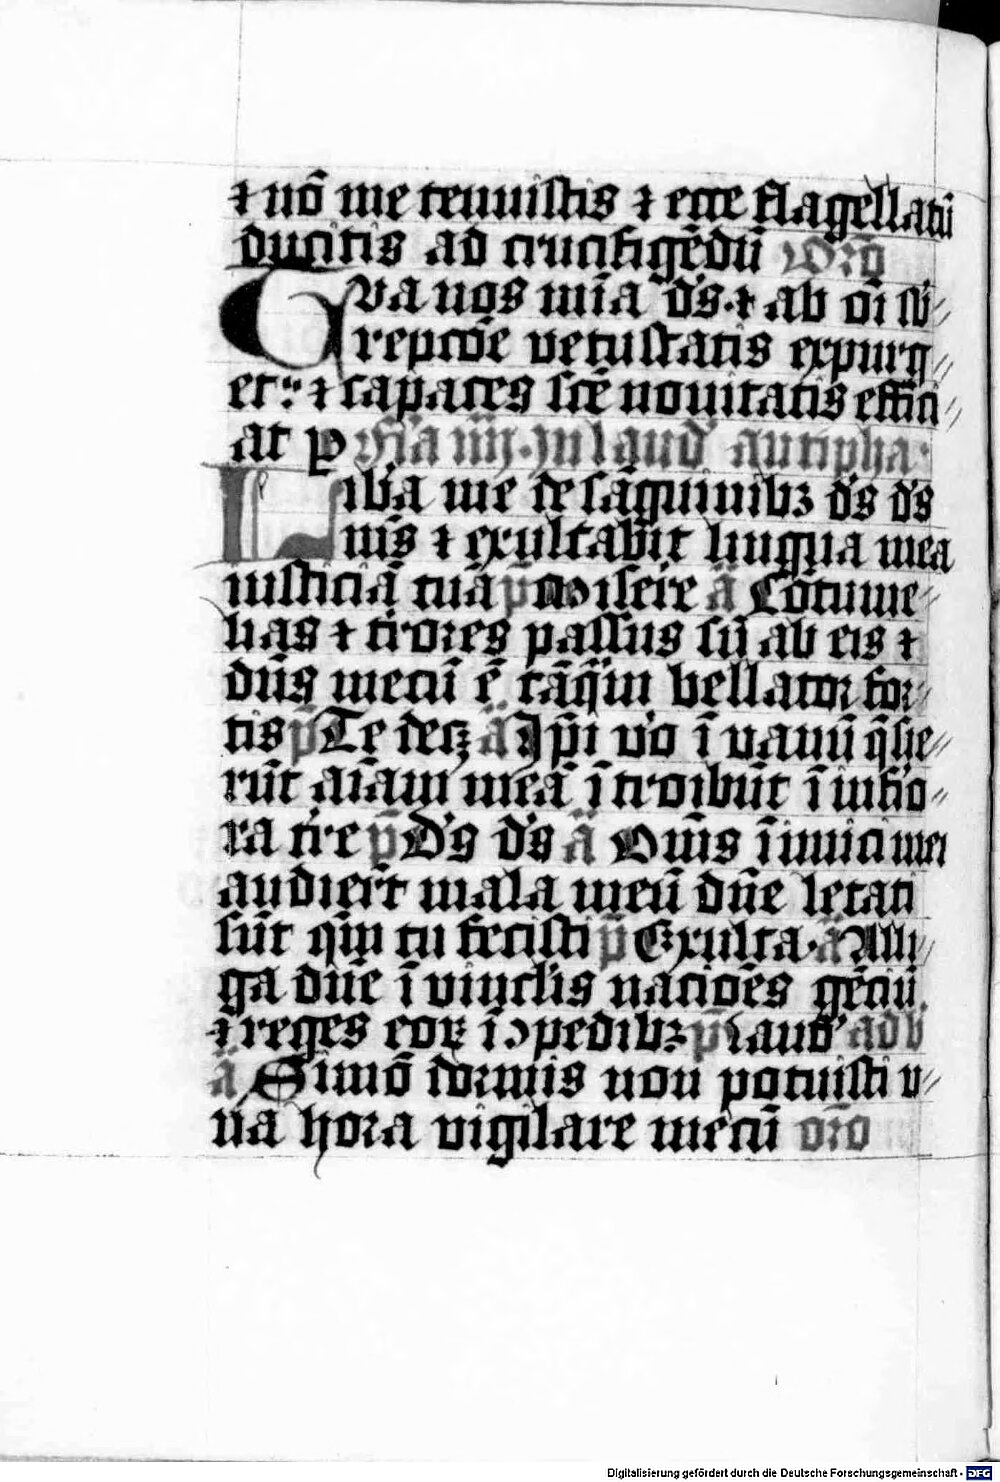 ⁊ nō me tenuistis ⁊ ecce flagellatū
ducitis ad crucifigēdū Oro
Tua nos mīa d's ⁊ ab oī su//
repcōe vetustatis expurg//
et ⁊ capaces scē nouitatis effici//
at p Fīa iiij. In laud' antipha
Liba me de sāguinibꝫ d's d's
mīs ⁊ exultabit lingua mea
iusticiā tuā p̄ Misere ā Cōtume//
lias ⁊ t'rores passus sū ab eis ⁊
dn̄s mecū ē tāq̄m bellator for//
tis p̄ Te decꝫ ā Ip̄i vo ī vanū q̄sie//
rūt aīam meā ītroibūt ī infio//
ra t're p̄ D's d's ā Om̄s īimici mei
audiert mala meū dn̄e letati
sūt qm̄ tu fecisti p̄ Exulta ā Alli//
ga dn̄e ī vinclis nacōes gēciū
⁊ reges eoꝝ ī ↄpedibꝫ p̄ laud' ad b
ā Simō dormis non potuisti v//
na hora vigilare mecū oro
Digitalisierung gefördert durch die Deutsche Forschungsgemeinschaft - DFG